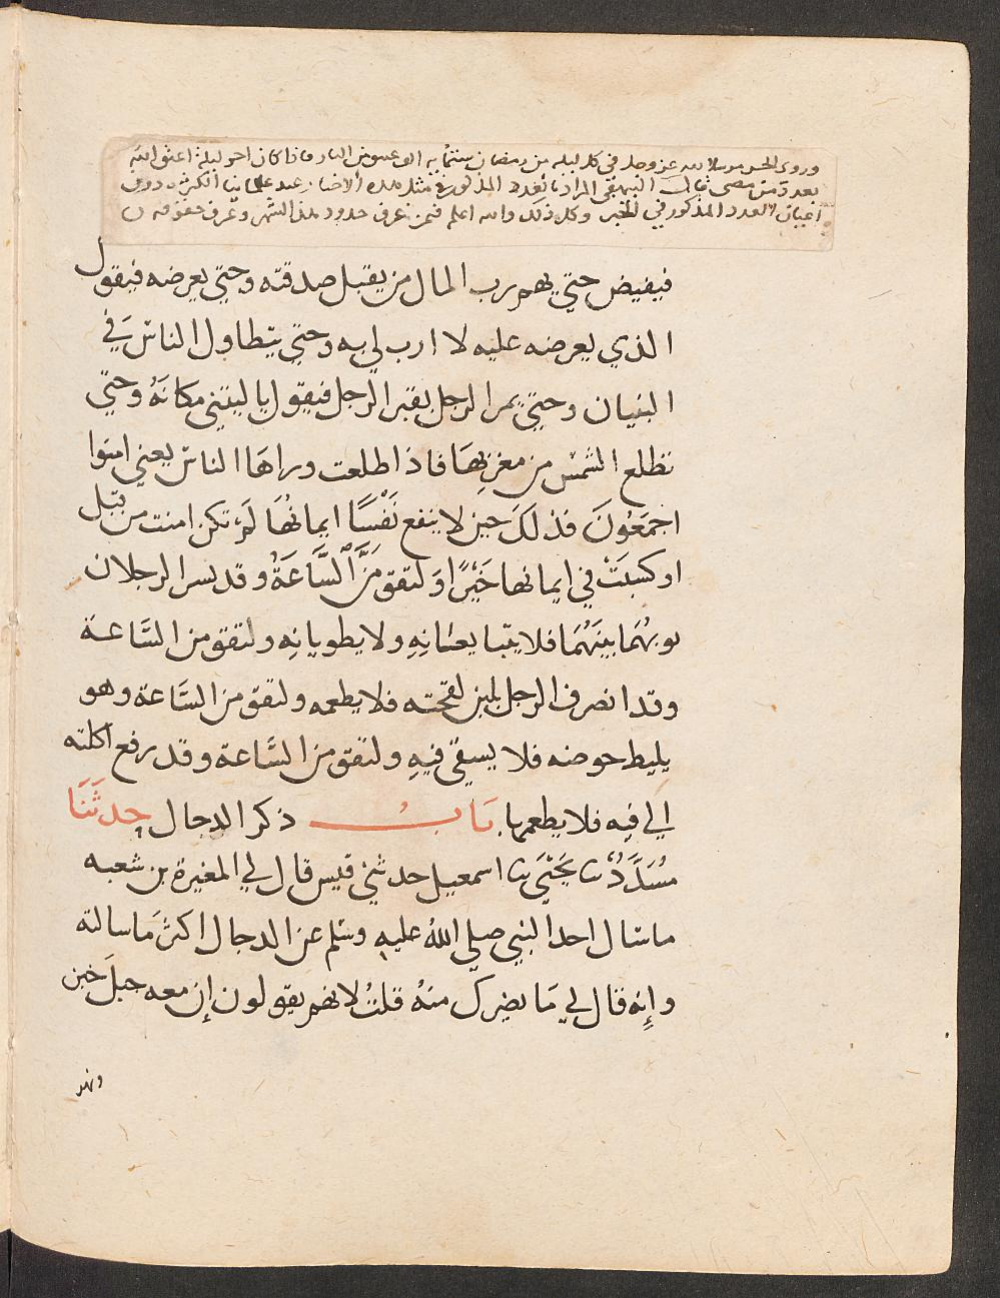 وروى الحسن مرسلا لله عز وجل في كل ليلة من رمضان ستمائة الف عتيق من النار فاذا كان اخر ليلة اعتق الله
بعدد من مضى قال البيهقي المراد بالعدد المذكور في مثل هذه الاخبار عند علمائنا الكثرة دون
اعيان العدد المذكور في الخبر وكل ذلك والله اعلم فيمن عرف حدود هذا الشهر وعرف حقوقه
فيفيض حتي يهم رب المال من يقبل صدقته وحتي يعرضه فيقول
الذي يعرضه عليه لا ارب لي به وحتي يتطاول الناس في
البنيان وحتي يمر الرجل بقبر الرجل فيقول يا ليتني مكانَهُ وحتي
تطلع الشمس من مغربِهَا فاذا طلعت وراهَا الناس يعني امنوا
اجمَعُونَ فذلكَ حين لا ينفع نَفْسًا ايمانُهَا لَمْ تكن امنت من قبل
او كسَبَتْ في ايمانها خَيْرًا وَلتقومَنَّ السَّاعَةُ وقد نسر الرجلان
ثوبهُمَا بينَهُمَا فلا يتبايعانِهِ ولا يطويانِهِ ولتقومن السَّاعة
وقد انصرف الرجل بلبن لقحته فلا يطعمه ولتقومن السَّاعة وهو
يليط حوضه فلا يسقي فيهِ ولتقومن السَّاعة وقد رفع اكلته
الي فيه فلا يطعمها بَابُ ذكر الدجال حدثَنَا
مُسَدَّدٌ ثنا يَحْيَى ثنا اسمعيل حدثني قيس قال لي المغيرة بن شعبه
ما سال احد النبي صلي اللهُ عليهِ وسلم عن الدجال اكثرَ مَا سالته
وإِنه قال لي مَا يضرك منهُ قلتُ لانهم يقولون إن معه جبلَ خبز
ونهر